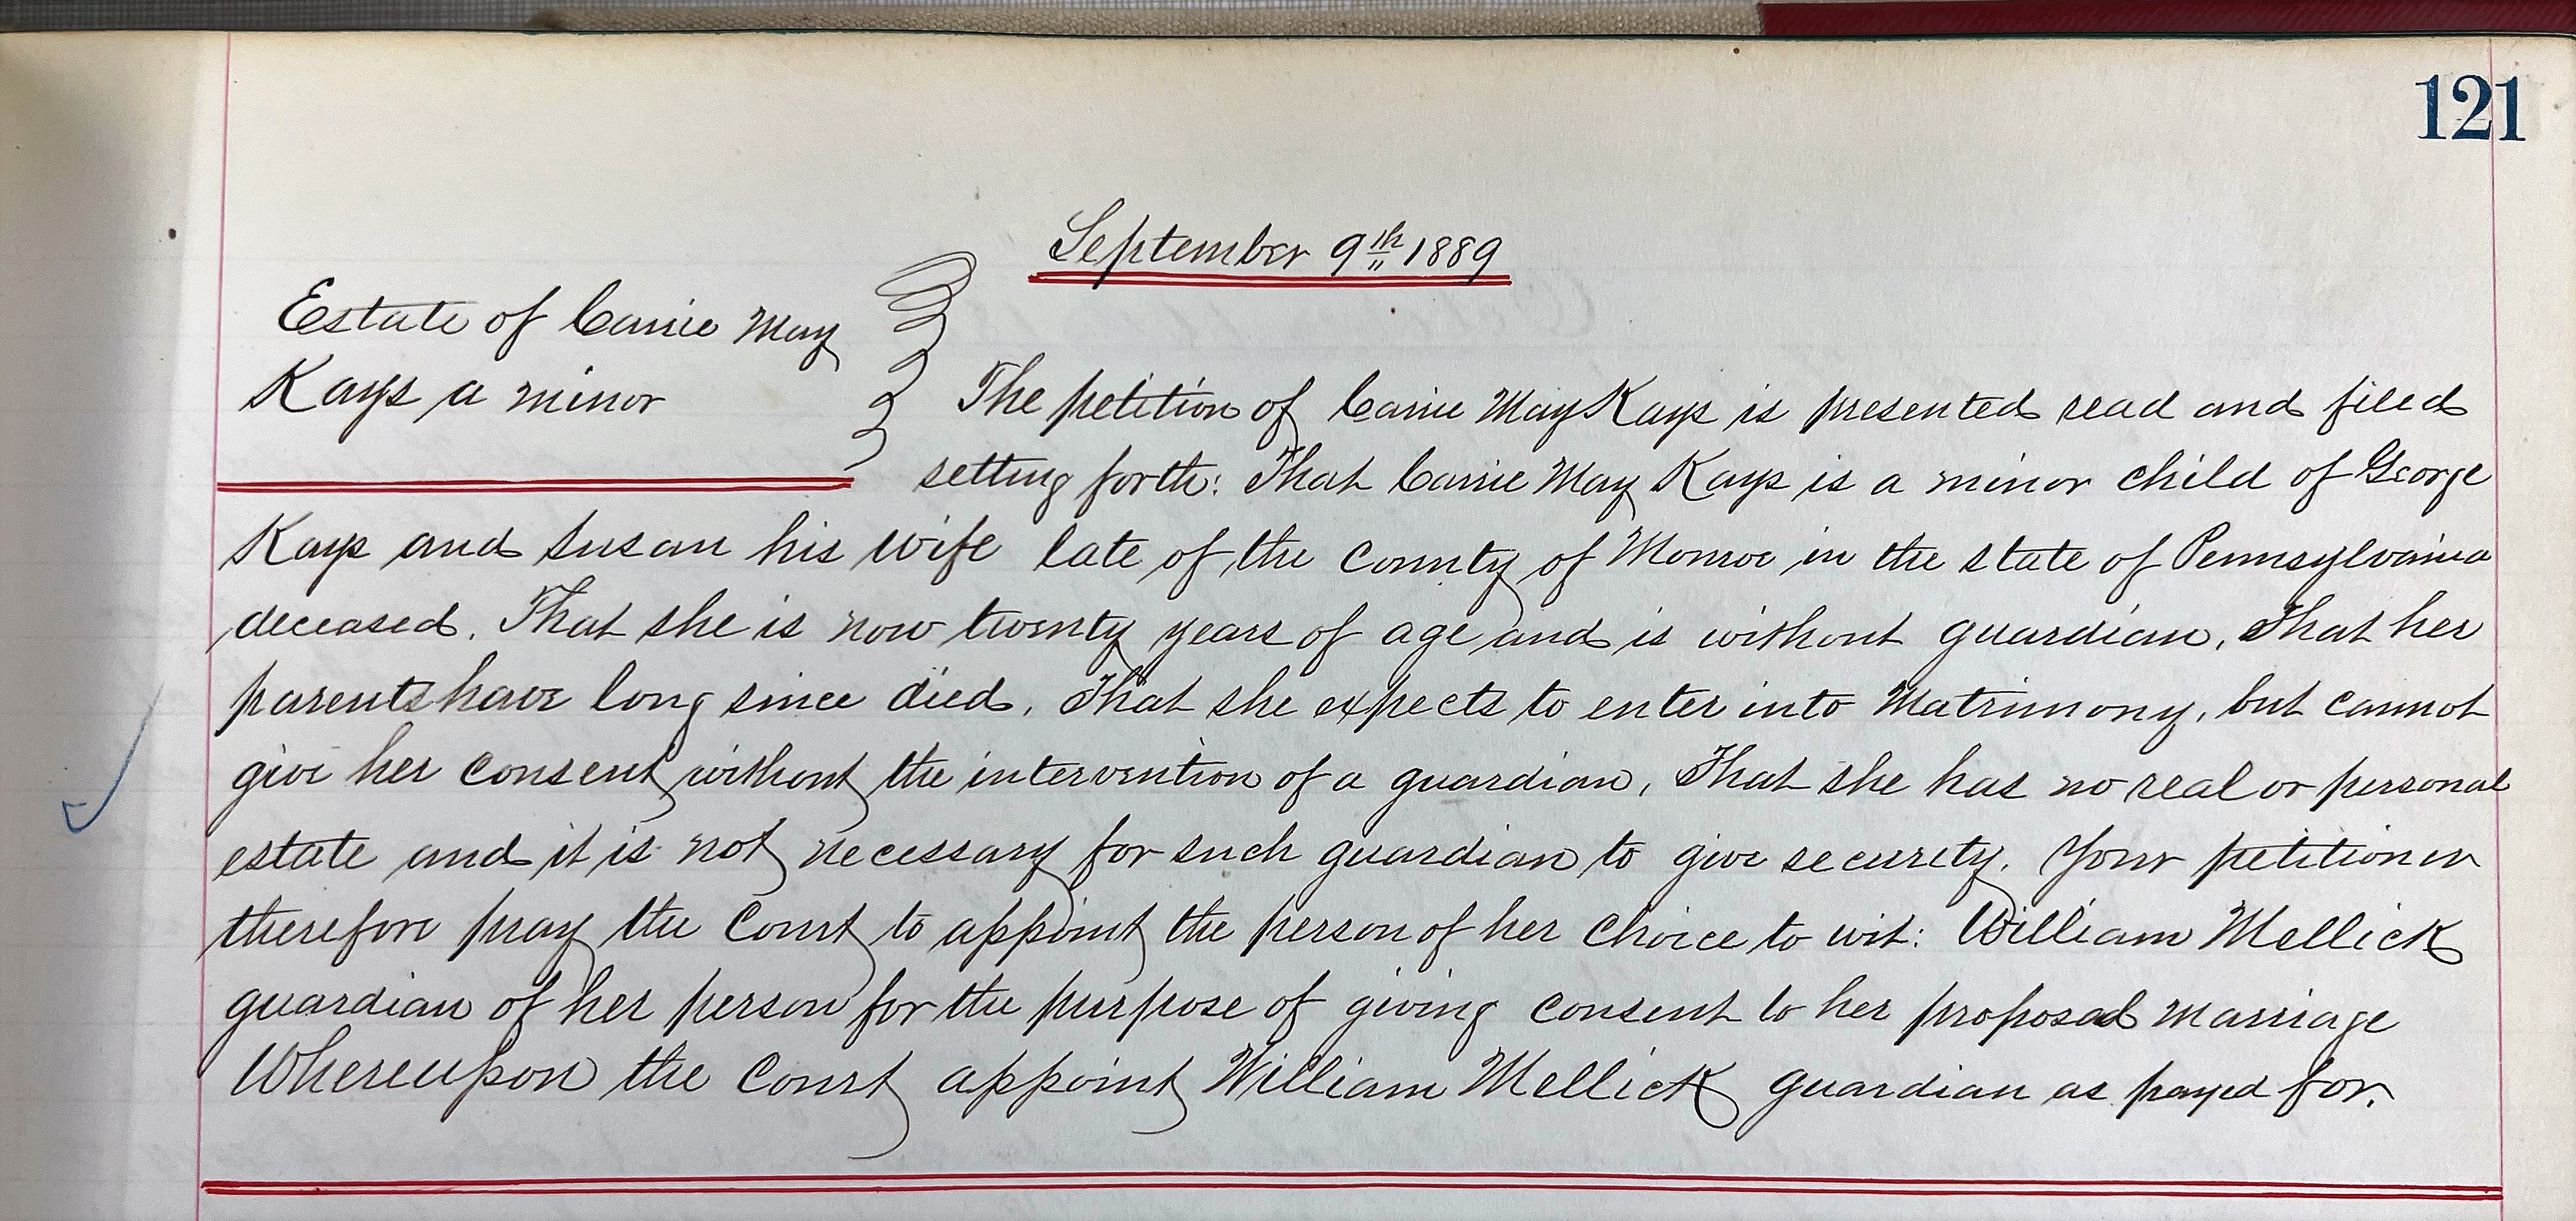 121
September 9th 1889
Estate of Carrie May
Kays a minor
The petition of Carrie May Kays is presented read and filed
setting forth: That Carrie May Kays is a minor child of George
Kays and Susan his wife late of the County of Monroe in the state of Pennsylvania
deceased. That she is now twenty years of age and is without guardian, That her
parents have long since died, That she expects to enter into Matrimony, but cannot
give her consent without the intervention of a guardian, That she has no real or personal
estate and it is not necessary for such guardian to give security. Your petitioner
therefore pray the Court to appoint the person of her choice to wit: William Mellick
guardian of her person for the purpose of giving consent to her proposed marriage
Whereupon the Court appoint William Mellick guardian as prayed for.